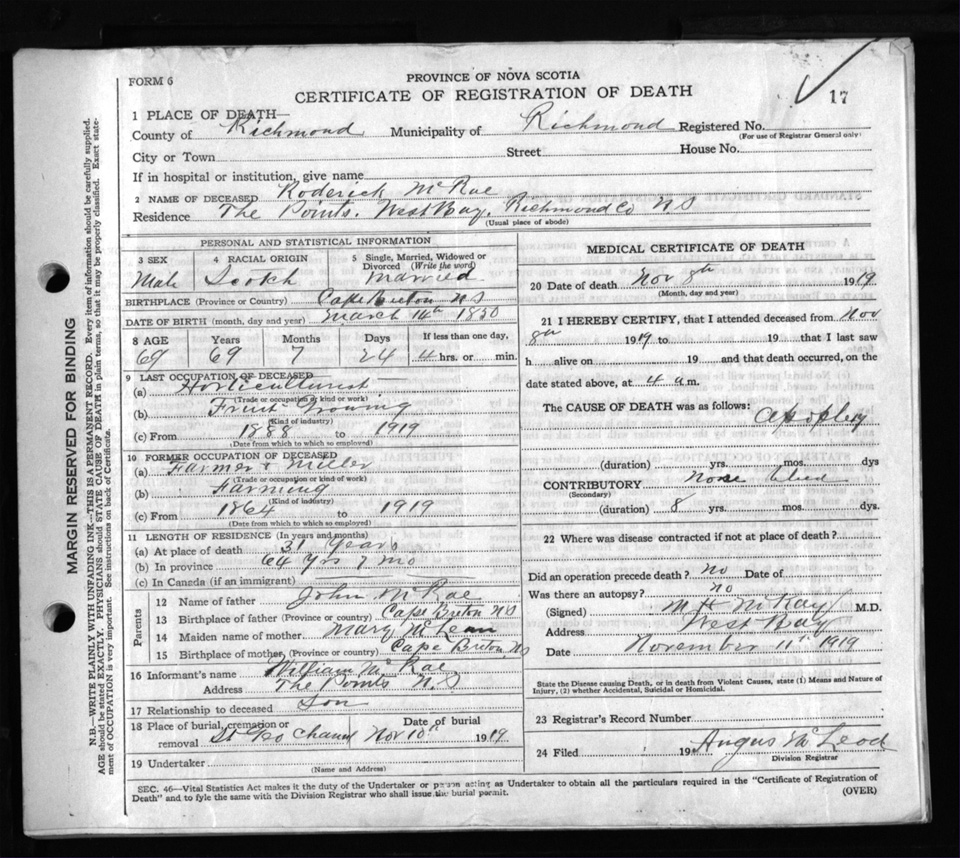 FORM 6
PROVINCE OF NOVA SCOTIA
CERTIFICATE OF REGISTRATION OF DEATH
17
1 PLACE OF DEATH—
County of Richmond Municipality of Richmond Registered No.
(For use of Registrar General only)
City or Town Street House No.
If in hospital or institution, give name
2 NAME OF DECEASED Roderick McRae
Residence The Points. West Bay. Richmond Co N.S
(Usual place of abode)
PERSONAL AND STATISTICAL INFORMATION
3 SEX 4 RACIAL ORIGIN 5 Single, Married, Widowed or Divorced (Write the word)
Male Scotch Married
BIRTHPLACE (Province or Country) Cape Breton N S
DATE OF BIRTH (month, day and year) March 14th 1850
8 AGE Years Months Days If less than one day,
69 69 7 24 4 hrs. or min.
9 LAST OCCUPATION OF DECEASED
(a) Horticulturist
(Trade or occupation or kind or work)
(b) Fruit Growing
(Kind of industry)
(c) From 1888 to 1919
(Date from which to which so employed)
10 FORMER OCCUPATION OF DECEASED
(a) Farmer & Miller
(Trade or occupation or kind of work)
(b) Farming
(Kind of industry)
(c) From 1864 to 1919
(Date from which to which so employed)
11 LENGTH OF RESIDENCE (In years and months)
(a) At place of death 31 Years
(b) In province 64 Yrs 7 Mo
(c) In Canada (if an immigrant)
Parents
12 Name of father John McRae
13 Birthplace of father (Province or country) Cape Breton N S
14 Maiden name of mother Mary McLean
15 Birthplace of mother (Province or country) Cape Breton, NS
16 Informant's name William McRae
Address The Points N.S
17 Relationship to deceased Son
18 Place of burial, cremation or removal Date of burial
St Geo Channel Nov 10th 1919
19 Undertaker
(Name and Address)
MEDICAL CERTIFICATE OF DEATH
20 Date of death Nov 8th 1919
(Month, day and year)
21 I HEREBY CERTIFY, that I attended deceased from Nov
8th 1919 to 19 that I last saw
h alive on 19 and that death occurred, on the
date stated above, at 4 a.m.
The CAUSE OF DEATH was as follows:
(duration) yrs. mos. dys
CONTRIBUTORY Nose bleed
(Secondary)
(duration) 8 yrs. mos. dys.
22 Where was disease contracted if not at place of death?
Did an operation precede death? no Date of
Was there an autopsy? no
(Signed) M H McKay M.D.
Address West Bay
Date November 11th 1919
State the Disease causing Death, or in death from Violent Causes, state (1) Means and Nature of
Injury, (2) whether Accidental, Suicidal or Homicidal.
23 Registrar's Record Number
24 Filed 19 Angus McLeod
Division Registrar
SEC. 46—Vital Statistics Act makes it the duty of the Undertaker or person acting as Undertaker to obtain all the particulars required in the "Certificate of Registration of
Death" and to fyle the same with the Division Registrar who shall issue the burial permit. (OVER)
MARGIN RESERVED FOR BINDING
N.B.—WRITE PLAINLY WITH UNFADING INK—THIS IS A PERMANENT RECORD. Every item of information should be carefully supplied.
AGE should be stated EXACTLY. PHYSICIANS should STATE CAUSE OF DEATH in plain terms, so that it may be properly classified. Exact state-
ment of OCCUPATION is very important. See instructions on back of Certificate.